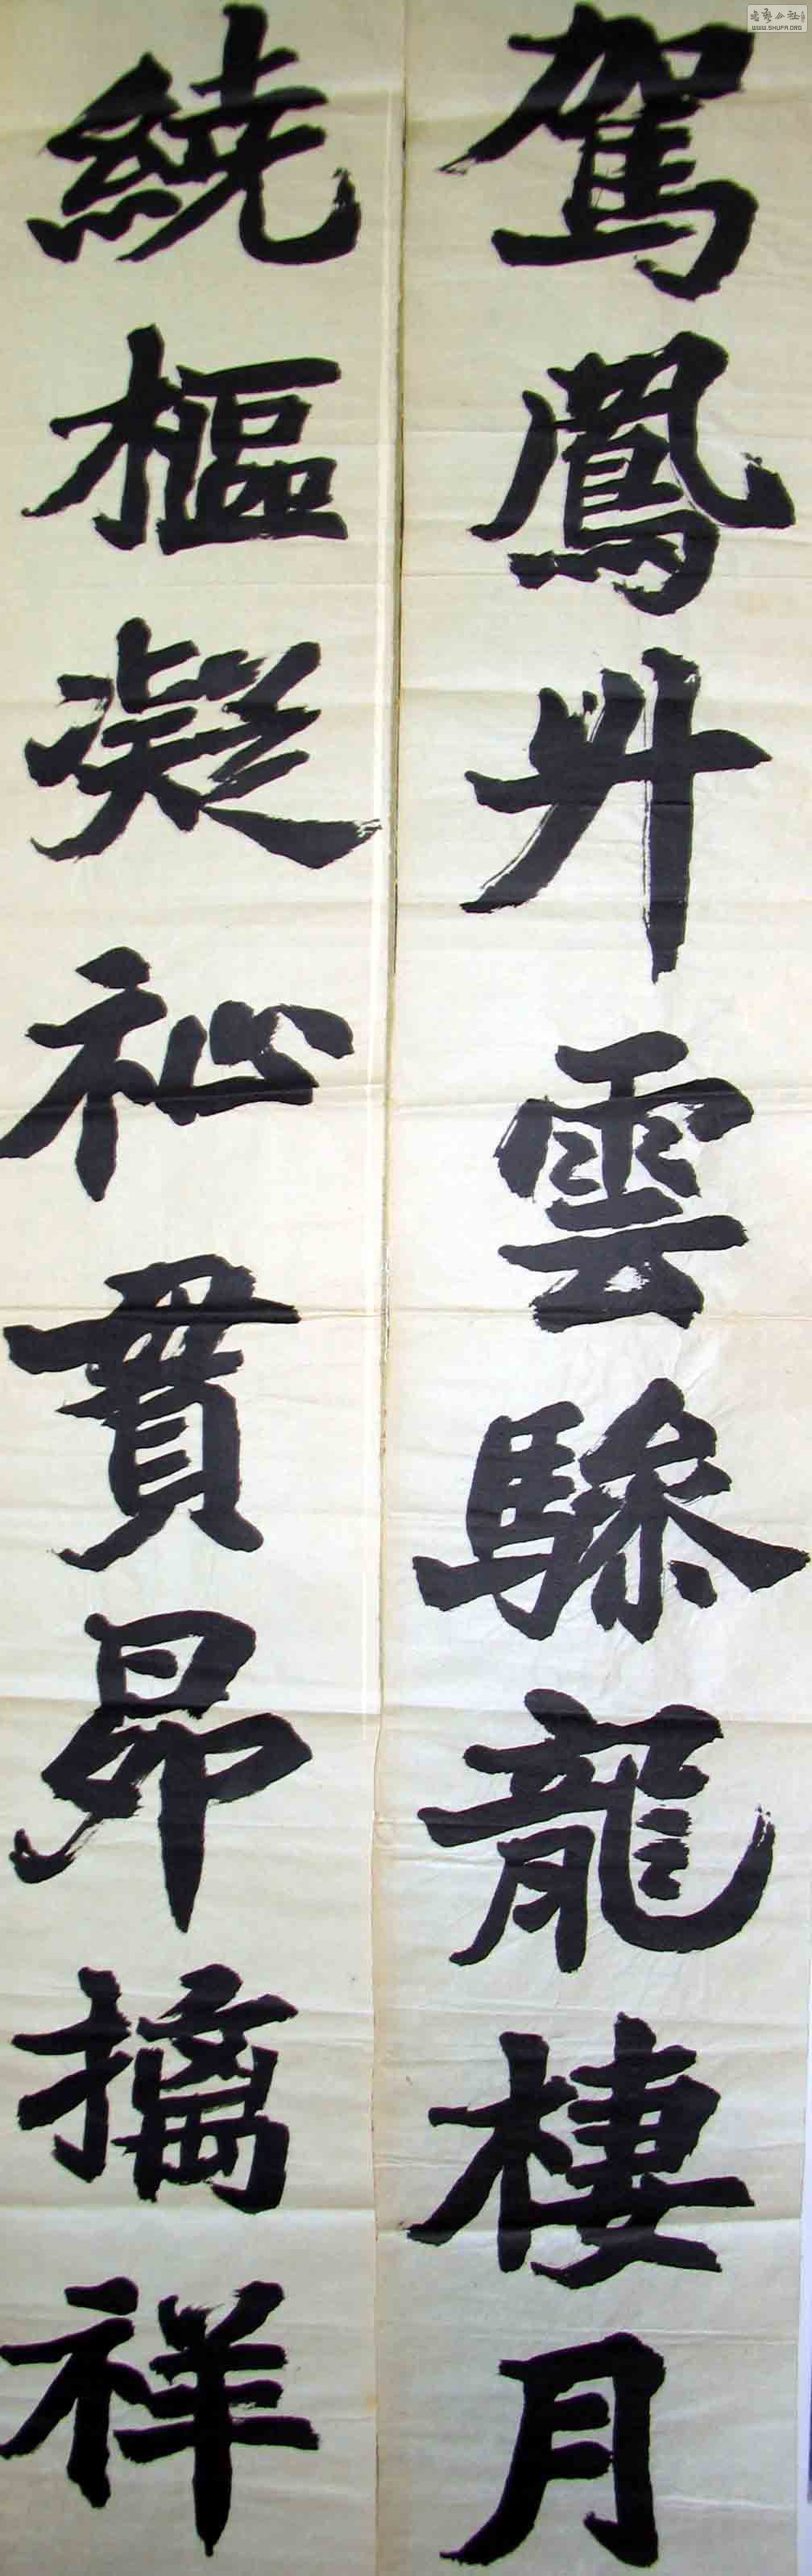 駕鳳升雲驂龍棲月
繞樞凝祉貫昴摛祥
书艺公社
WWW.SHUFA.ORG